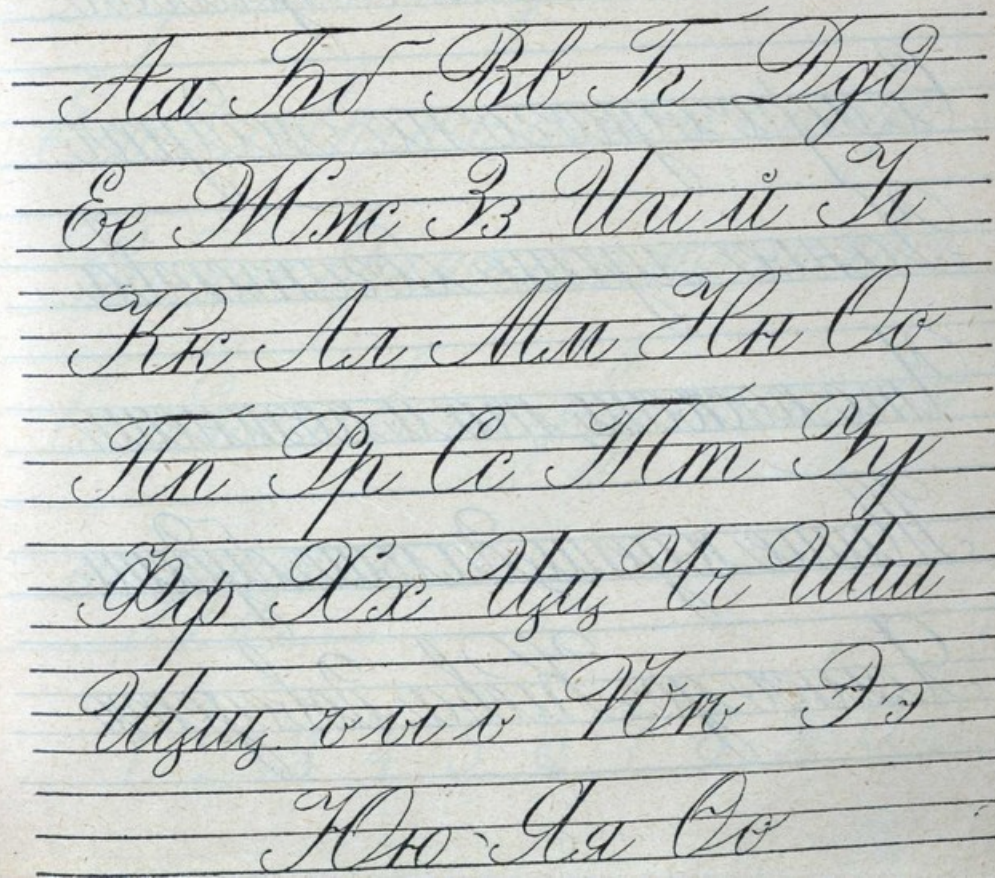 Аа Бб Вв Гг Ддд
Ее Жж Зз Ии й Іі
Кк Лл Мм Нн Оо
Пп Рр Сс Тт Уу
Фф Хх Цц Чч Шш
Щщ ъ ы ь Ѣѣ Ээ
Юю Яя Ѳѳ